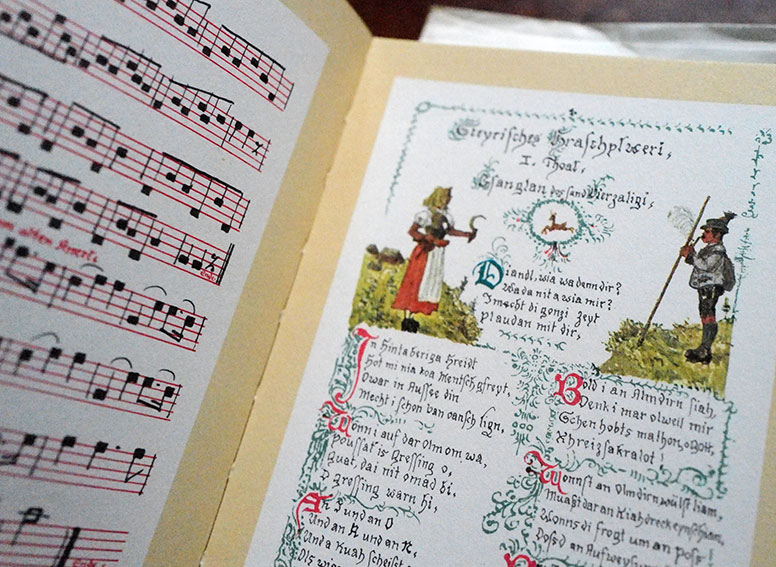 Ende.
Steyrisches Graschplweri,
I. Thoal,
Gsanglan des sand Vierzaligi,
Diandl, wia wa denn dir?
Wa da nit a wia mir?
I mecht di gonzi Zeyt
plaudan mit dir,
In Hintaberiga Greidt
Hot mi nia koa Mentsch gfreyt,
Owar in Aussee din
Mecht i schon van oansch lign,
Wonn i auf dar Olm om wa,
Gressing o,
Guat, dai nit omad bi.
D Gressing warn hi,
An S und an O
Und an K und an K,
Und a Kuah scheist
Bold i an Almdirn siah,
Denk i mar olweil mir
Schen hobts malhon, o Gott,
Khreizsakralot!
Wonnst an Olmdirn wülst liam,
Muaßt dar an Kiahdreck
Wonns di frogt um an
Doss d an